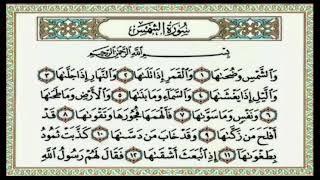 سُورَةُ الشَّمْسِ
بِسْمِ اللَّهِ الرَّحْمَٰنِ الرَّحِيمِ
وَالشَّمْسِ وَضُحَىٰهَا ١ وَالْقَمَرِ إِذَا تَلَىٰهَا ٢ وَالنَّهَارِ إِذَا جَلَّىٰهَا ٣
وَالَّيْلِ إِذَا يَغْشَىٰهَا ٤ وَالسَّمَاءِ وَمَا بَنَىٰهَا ٥ وَالْأَرْضِ وَمَا طَحَىٰهَا
٦ وَنَفْسٍ وَمَا سَوَّىٰهَا ٧ فَأَلْهَمَهَا فُجُورَهَا وَتَقْوَىٰهَا ٨ قَدْ
أَفْلَحَ مَن زَكَّىٰهَا ٩ وَقَدْ خَابَ مَن دَسَّىٰهَا ١٠ كَذَّبَتْ ثَمُودُ
بِطَغْوَىٰهَا ١١ إِذِ انۢبَعَثَ أَشْقَىٰهَا ١٢ فَقَالَ لَهُمْ رَسُولُ اللَّهِ